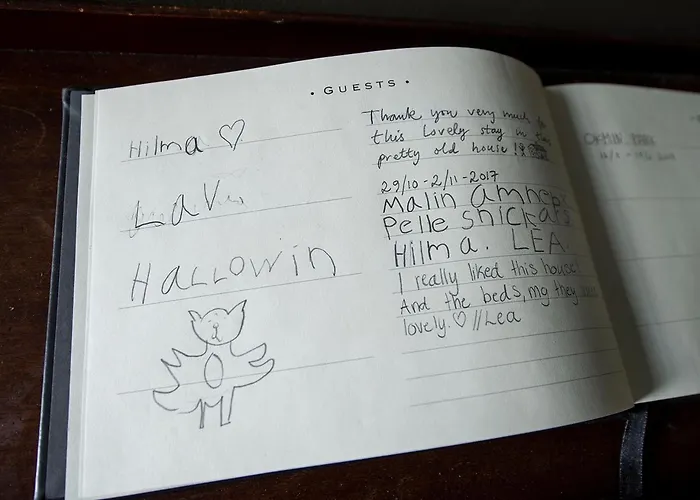 • GUESTS •
Hilma ♡
LaV
HALLOWin
Thank you very much for
this lovely stay in this
pretty old house!
29/10-2/11-2017
Malin
Pelle
Hilma. LEA.
I really liked this house!
And the beds, mg they
lovely. ♡ //Lea